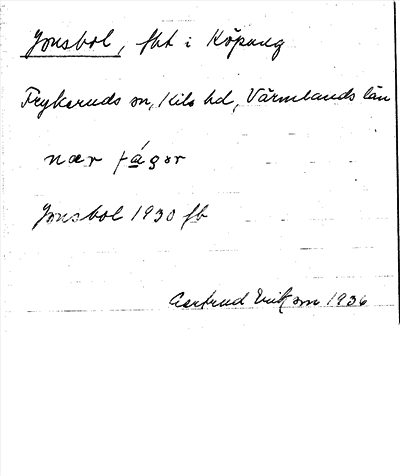 Jonsbol, fht i Köpung
Frykeruds sn, Kils hd, Värmlands län
Jonsbol 1930 fb
Gertrud Erikson 1936